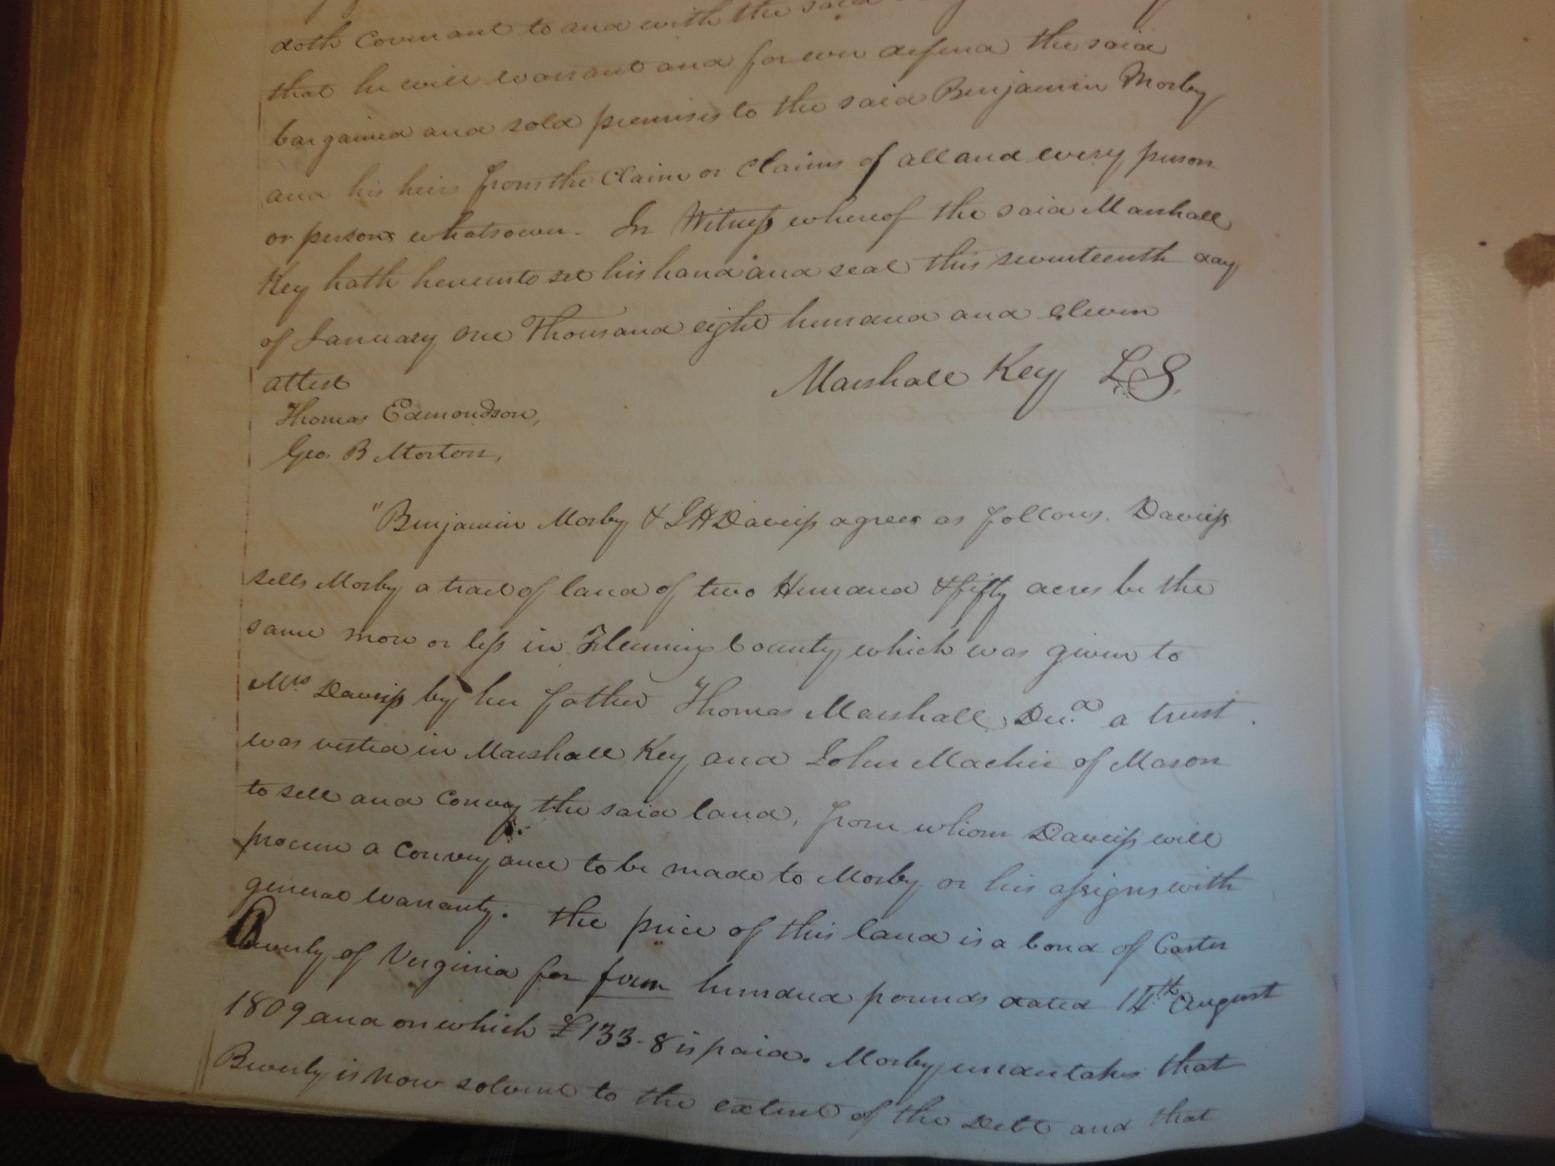 doth Covenant to and with the said
that he will warrant and for ever defend the said
bargained and sold premises to the said Benjamin Mosby
and his heirs from the Claim or Claims of all and every person
or persons whatsoever. In Witness whereof the said Marshall
Key hath hereunto set his hand and seal this seventeenth day
of January one Thousand eight hundred and eleven
attest
Marshall Key LS.
Thomas Edmondson,
Geo. B Morton,
"Benjamin Mosby & JH Daveiss agree as follows. Daveiss
sells Mosby a tract of land of two Hundred & fifty acres be the
same more or less in Fleming County which was given to
Mrs Daveiss by her father Thomas Marshall, Decd a trust
was vested in Marshall Key and John Machir of Mason
to sell and convey the said land, from whom Daveiss will
procure a Conveyance to be made to Mosby or his assigns with
general warranty. the price of this land is a bond of Carter
Beverly of Verginia for four hundred pounds dated 14th August
1809 and on which £133-8 is paid. Mosby undertakes that
Beverly is now solvent to the extent of the Debt and that